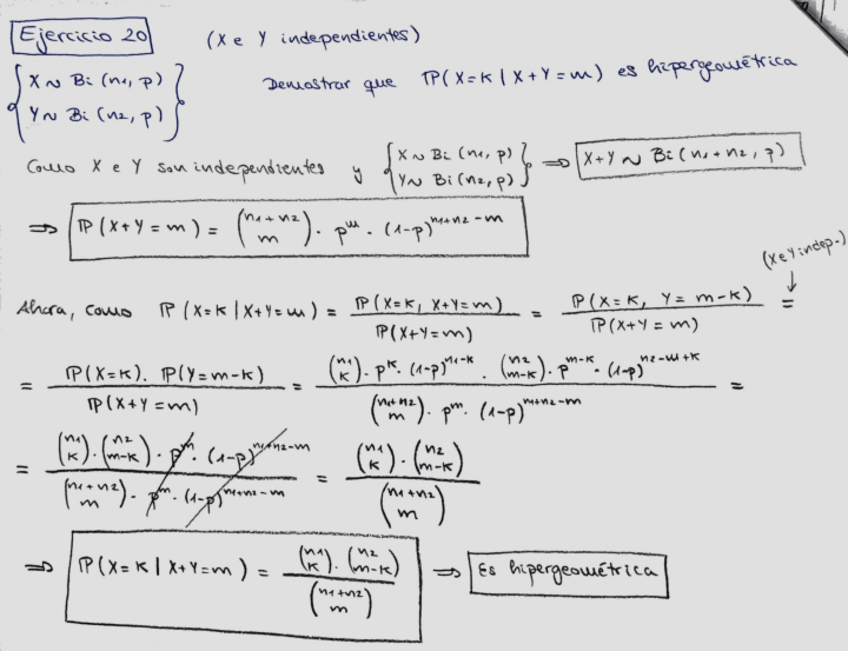 Ejercicio 20 (X e Y independientes)
{X ~ Bi (n₁, p)
Y ~ Bi (n₂, p)} Demostrar que ℙ(X=K | X+Y=m) es hipergeométrica
Como X e Y son independientes y {X ~ Bi (n₁, p) Y ~ Bi (n₂, p)} ⇒ X+Y ~ Bi (n₁+n₂, p)
⇒ ℙ(X+Y=m) = (n₁+n₂ m) · p^m · (1-p)^(n₁+n₂-m)
(X e Y indep.)
↓
Ahora, como ℙ(X=K | X+Y=m) = ℙ(X=K, X+Y=m) / ℙ(X+Y=m) = ℙ(X=K, Y=m-K) / ℙ(X+Y=m) =
= ℙ(X=K) · ℙ(Y=m-K) / ℙ(X+Y=m) = (n₁ K) · p^K · (1-p)^(n₁-K) · (n₂ m-K) · p^(m-K) · (1-p)^(n₂-m+K) / (n₁+n₂ m) · p^m · (1-p)^(n₁+n₂-m) =
= (n₁ K) · (n₂ m-K) · p^m · (1-p)^(n₁+n₂-m) / (n₁+n₂ m) · p^m · (1-p)^(n₁+n₂-m) = (n₁ K) · (n₂ m-K) / (n₁+n₂ m)
⇒ ℙ(X=K | X+Y=m) = (n₁ K) · (n₂ m-K) / (n₁+n₂ m) ⇒ Es hipergeométrica